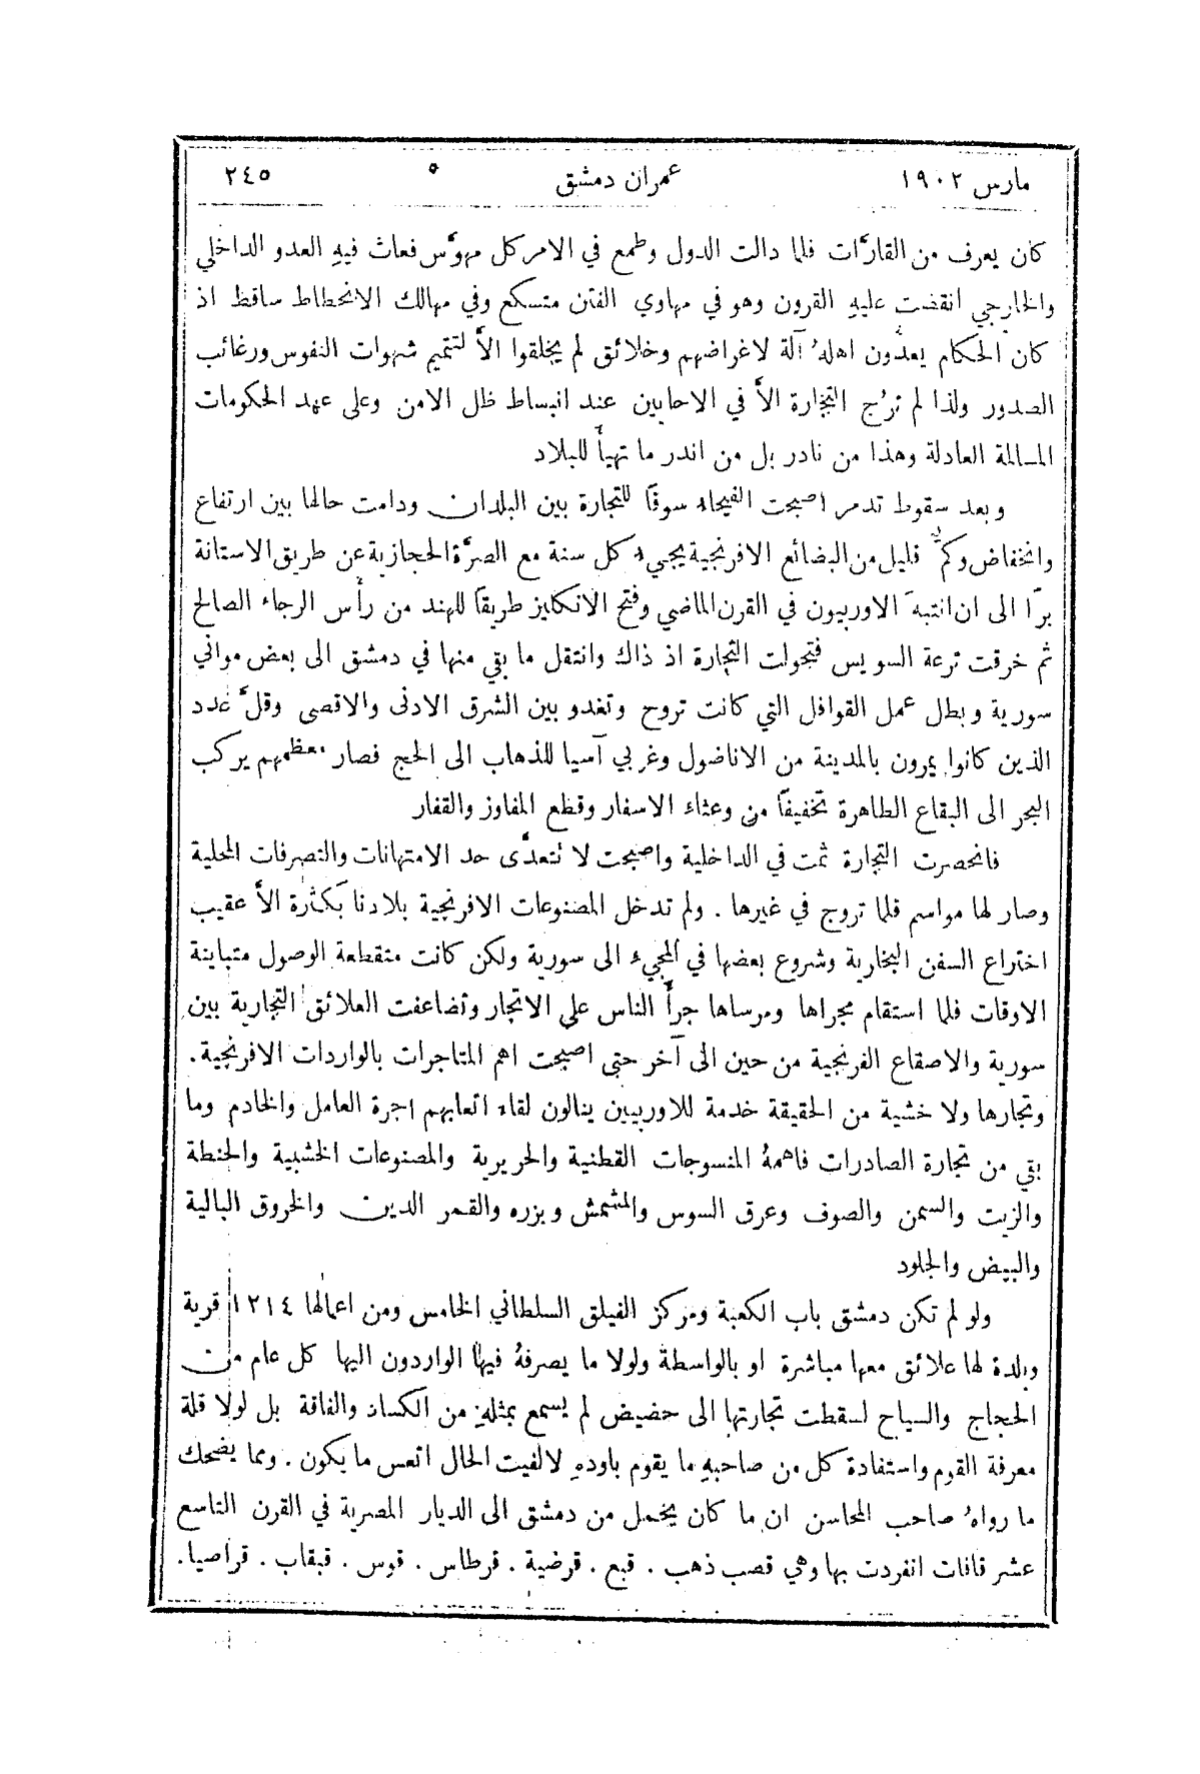 مارس ١٩٠٢ عمران دمشق ٢٤٥
كان يعرف من القارّات فلما دالت الدول وطمع في الامر كل مهوّس فعاث فيهِ العدو الداخلي
والخارجي انقضت عليهِ القرون وهو في مهاوي الفتن متسكع وفي مهالك الانحطاط ساقط اذ
كان الحكام يعدُّون اهلهُ آلة لاغراضهم وخلائق لم يخلقوا الاَّ لتتميم شهوات النفوس ورغائب
الصدور ولذا لم ترُج التجارة الاَّ في الاحايين عند انبساط ظل الامن وعلى عهد الحكومات
المسالمة العادلة وهذا من نادر بل من اندر ما تهيأَ للبلاد
وبعد سقوط تدمر اصبحت الفيحاء سوقًا للتجارة بين البلدان ودامت حالها بين ارتفاع
وانخفاض وكمٌّ قليل من البضائع الافرنجية يجيء كل سنة مع الصرَّة الحجازية عن طريق الاستانة
برًّا الى ان انتبهَ الاوربيون في القرن الماضي وفتح الانكليز طريقًا للهند من رأس الرجاء الصالح
ثم خرقت ترعة السويس فتحولت التجارة اذ ذاك وانتقل ما بقي منها في دمشق الى بعض مواني
سورية وبطل عمل القوافل التي كانت تروح وتغدو بين الشرق الادنى والاقصى وقلَّ عدد
الذين كانوا يمرون بالمدينة من الاناضول وغربي آسيا للذهاب الى الحج فصار معظمهم يركب
البحر الى البقاع الطاهرة تخفيفًا من وعثاء الاسفار وقطع المفاوز والقفار
فانحصرت التجارة ثمت في الداخلية واصبحت لا تتعدَّى حد الامتهانات والتصرفات المحلية
وصار لها مواسم قلما تروج في غيرها . ولم تدخل المصنوعات الافرنجية بلادنا بكثرة الاَّ عقيب
اختراع السفن البخارية وشروع بعضها في المجيء الى سورية ولكن كانت متقطعة الوصول متباينة
الاوقات فلما استقام مجراها ومرساها جرأَ الناس على الاتجار وتضاعفت العلائق التجارية بين
سورية والاصقاع الفرنجية من حين الى آخر حتى اصبحت اهم المتاجرات بالواردات الافرنجية.
وتجارها ولا خشية من الحقيقة خدمة للاوربيين ينالون لقاء اتعابهم اجرة العامل والخادم وما
بقي من تجارة الصادرات فاهمهُ المنسوجات القطنية والحريرية والمصنوعات الخشبية والحنطة
والزيت والسمن والصوف وعرق السوس والمشمش وبزره والقمر الدين والخروق البالية
والبيض والجلود
ولو لم تكن دمشق باب الكعبة ومركز الفيلق السلطاني الخامس ومن اعمالها ١٢١٤ قرية
وبلدة لها علائق معها مباشرة او بالواسطة ولولا ما يصرفهُ فيها الواردون اليها كل عام من
الحجاج والسياح لسقطت تجارتها الى حضيض لم يسمع بمثلهِ من الكساد والفاقة بل لولا قلة
معرفة القوم واستفادة كل من صاحبهِ ما يقوم باودهِ لالفيت الحال اتعس ما يكون . ومما يضحك
ما رواهُ صاحب المحاسن ان ما كان يحمل من دمشق الى الديار المصرية في القرن التاسع
عشر قافات انفردت بها وهي قصب ذهب . قبع . قرضية . قرطاس . قوس . قبقاب . قراصيا.